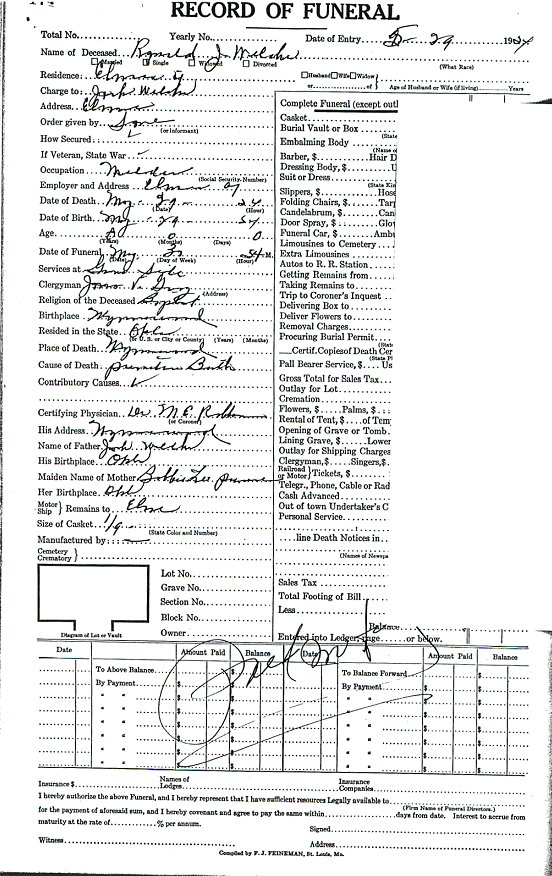 RECORD OF FUNERAL
Total No. Yearly No. Date of Entry 29 19
Name of Deceased Ronald J. Welch
Married Single Widowed Divorced
(What Race)
Residence: Elmore Cy Husband Wife Widow
or of Age of Husband or Wife (if living) Years
Charge to: Jack Welch
Address Elmore
Order given by Same
(or informant)
How Secured
If Veteran, State War
Occupation
(Social Security Number)
Employer and Address Elmore Cy
Date of Death May 29
(Date) (Hour)
Date of Birth May 29 54
Age 0 0 0
(Years) (Months) (Days)
Date of Funeral May 54 M.
(Date) (Day of Week) (Hour)
Services at Grave Side
Clergyman
(Address)
Religion of the Deceased Baptist
Birthplace Wynnewood
Resided in the State Okla
(or U. S. or City or County) (Years) (Months)
Place of Death Wynnewood
Cause of Death premature Birth
Contributory Causes
Certifying Physician Dr. M. E.
(or Coroner)
His Address Wynnewood
Name of Father Jack Welch
His Birthplace Okla
Maiden Name of Mother Bobbie Lee
Her Birthplace Okla
Motor Ship } Remains to Elmore
Size of Casket
(State Color and Number)
Manufactured by
Cemetery Crematory }
Lot No.
Grave No.
Section No.
Block No.
Owner
Diagram of Lot or Vault
Complete Funeral (except outl
Casket
Burial Vault or Box
(State
Embalming Body
(Name o
Barber, $ Hair D
Dressing Body, $ U
Suit or Dress
(State Kin
Slippers, $ Hose
Folding Chairs, $ Tarp
Candelabrum, $ Can
Door Spray, $ Glov
Funeral Car, $ Ambu
Limousines to Cemetery
Extra Limousines
Autos to R. R. Station
Getting Remains from
Taking Remains to
Trip to Coroner's Inquest
Delivering Box to
Deliver Flowers to
Removal Charges
Procuring Burial Permit
(State
Certif. Copies of Death Cer
(State Pl
Pall Bearer Service, $ Us
Gross Total for Sales Tax
Outlay for Lot
Cremation
Flowers, $ Palms, $
Rental of Tent, $ of Tem
Opening of Grave or Tomb
Lining Grave, $ Lower
Outlay for Shipping Charges
Clergyman, $ Singers, $
Railroad or Motor } Tickets, $
Telegr., Phone, Cable or Rad
Cash Advanced
Out of town Undertaker's C
Personal Service
line Death Notices in
(Names of Newspa
Sales Tax
Total Footing of Bill
Less
Balance
Entered into Ledger, page or below.
Date Amount Paid Balance Date Amount Paid Balance
To Above Balance $ To Balance Forward
By Payment $ By Payment $
Insurance $ Names of Lodges Insurance Companies
I hereby authorize the above Funeral, and I hereby represent that I have sufficient resources Legally available to
(Firm Name of Funeral Directors.)
for the payment of aforesaid sum, and I hereby covenant and agree to pay the same within days from date. Interest to accrue from
maturity at the rate of % per annum.
Signed
Witness Address
Compiled by F. J. FEINEMAN, St. Louis, Mo.